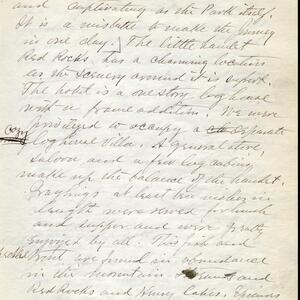 and captivating as the Park itself.
It is a mistake to make the journey
in one day. The little hamlet
Red Rocks has a charming location
as the scenery around it is superb.
The hotel is a one story log house
with a frame addition. We were
privileged to occupy a separate
Copy
log house Villa. A general store,
saloon and a few log cabins,
make up the balance of the hamlet.
Graylings at least ten inches in
length were served for lunch
and supper and were greatly
enjoyed by all. This fish and
trout are found in abundance
in the mountain streams and
Red Rocks and Henry Lakes. Streams